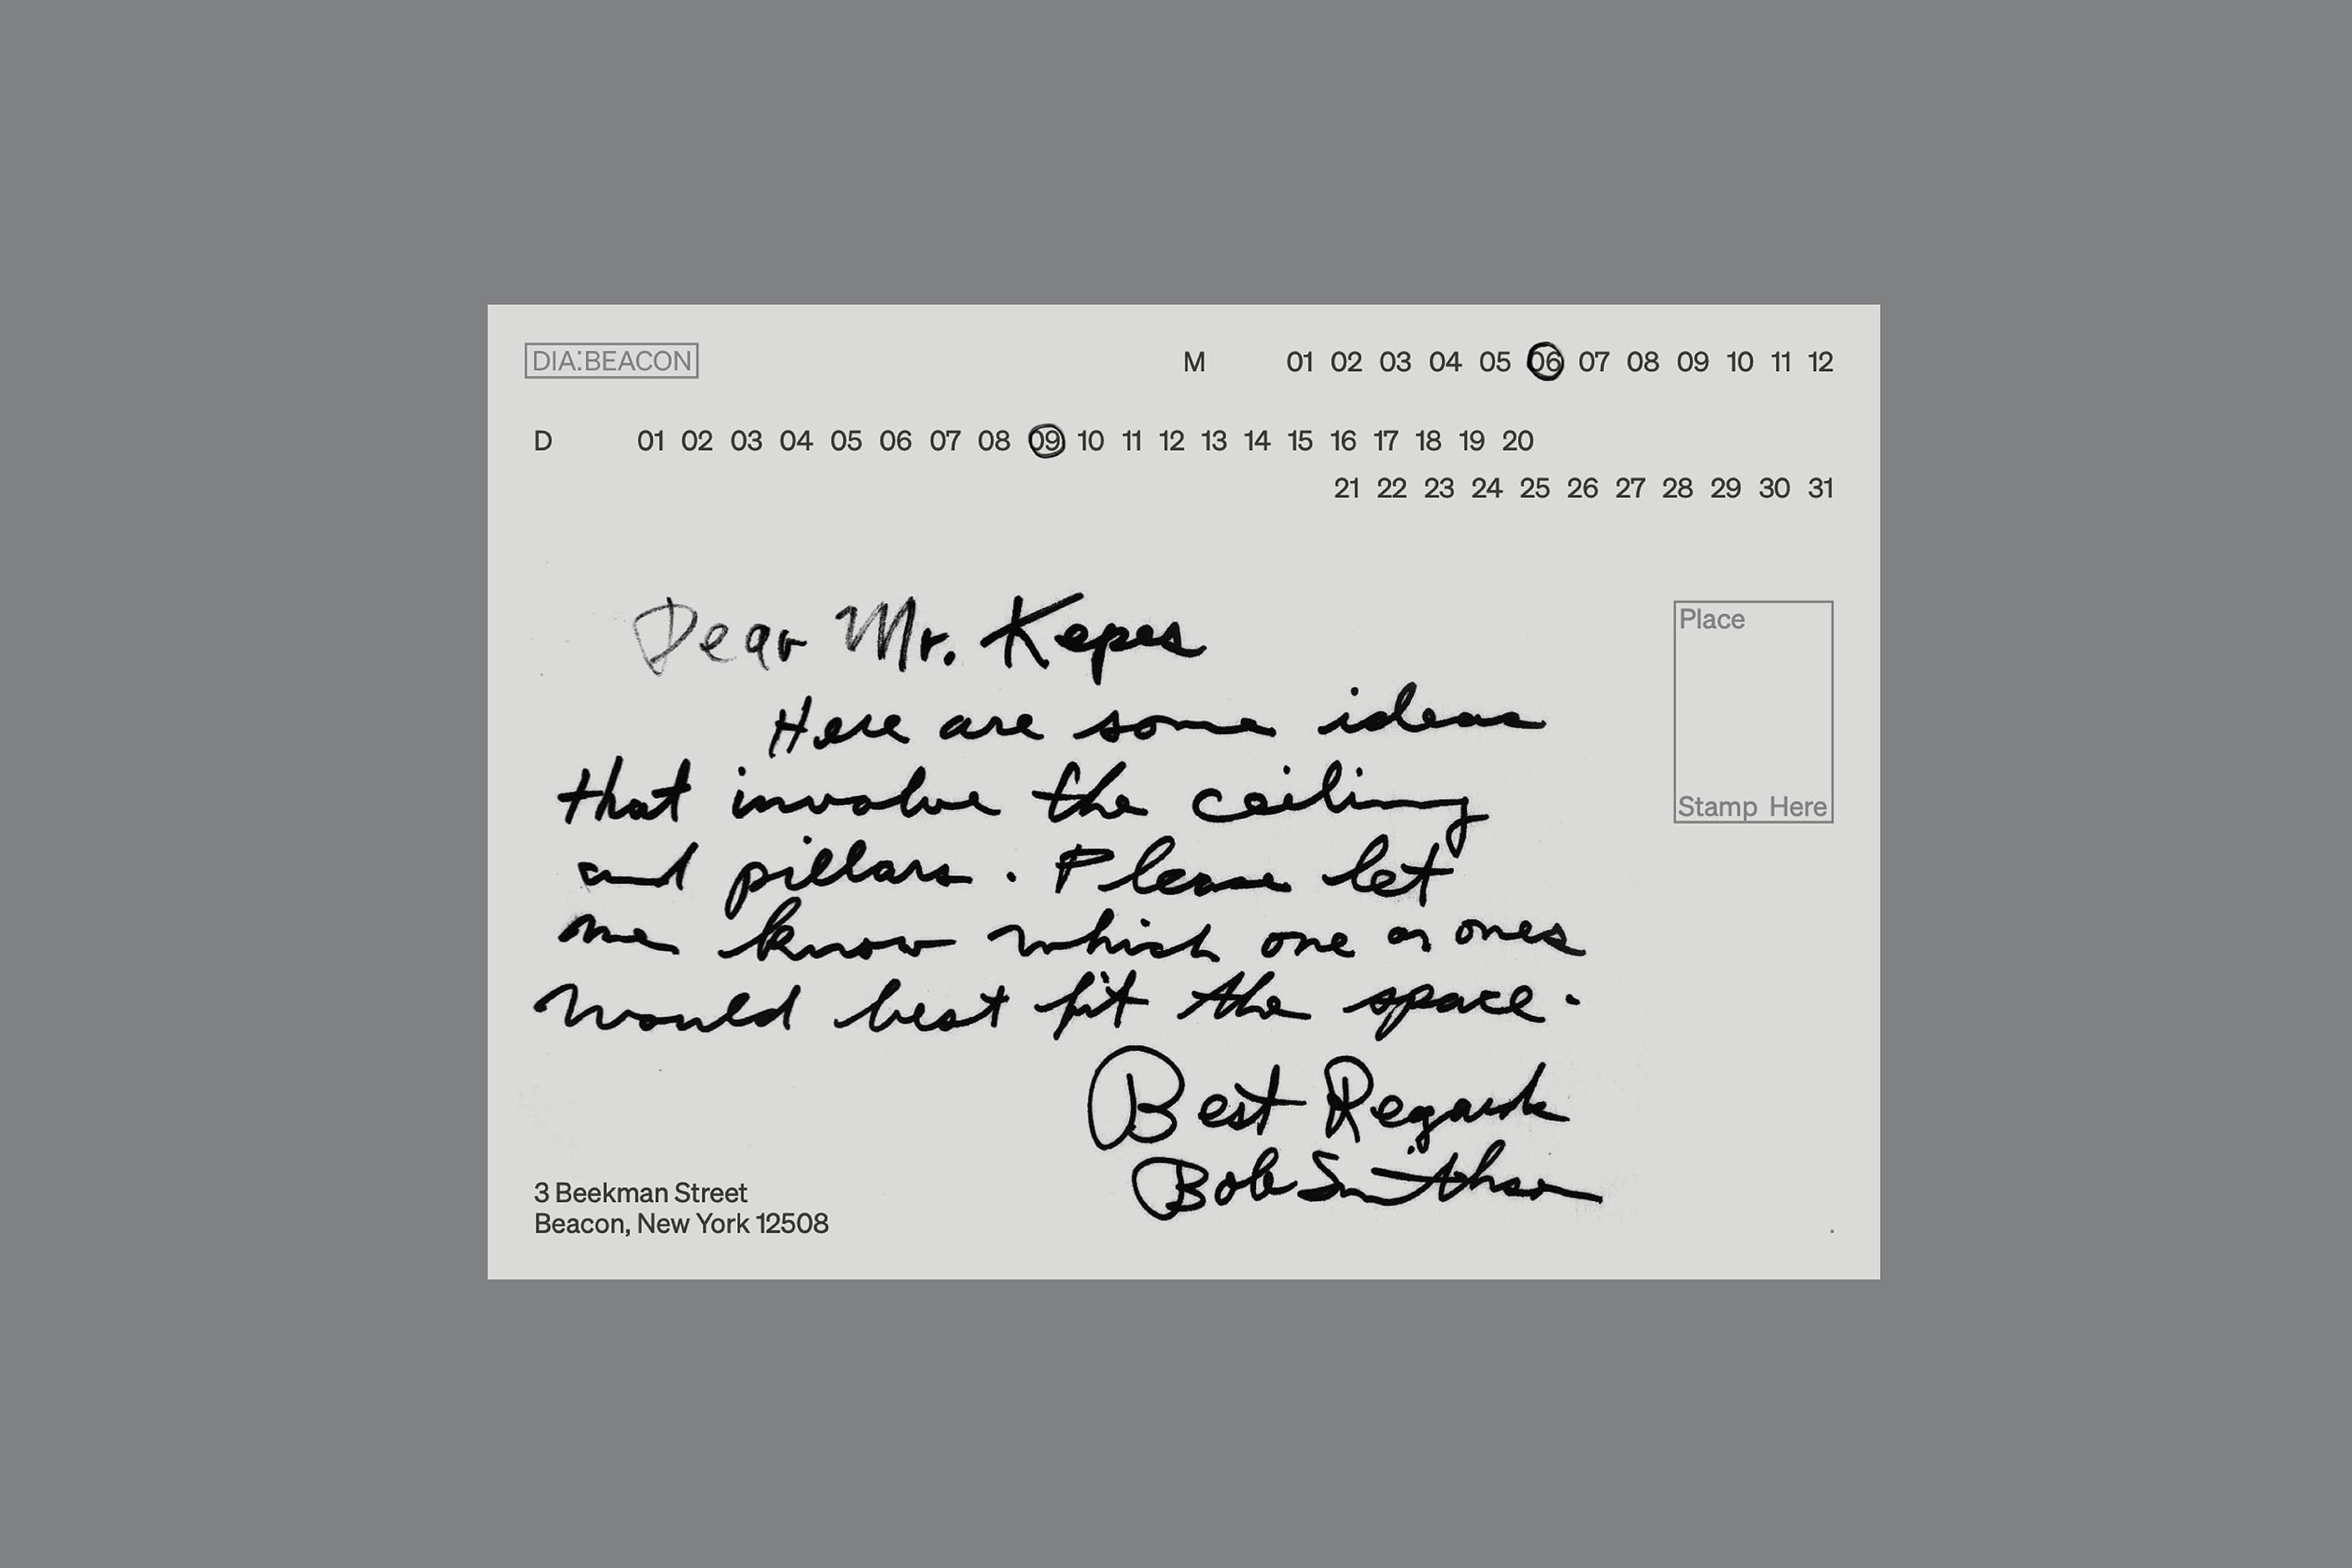 DIA:BEACON
M 01 02 03 04 05 06 07 08 09 10 11 12
D 01 02 03 04 05 06 07 08 09 10 11 12 13 14 15 16 17 18 19 20
21 22 23 24 25 26 27 28 29 30 31
Dear Mr. Kepes
Here are some ideas
that involve the ceiling
and pillars. Please let
me know which one or ones
would best fit the space.
Best Regards
Bob Smithson
Place
Stamp Here
3 Beekman Street
Beacon, New York 12508